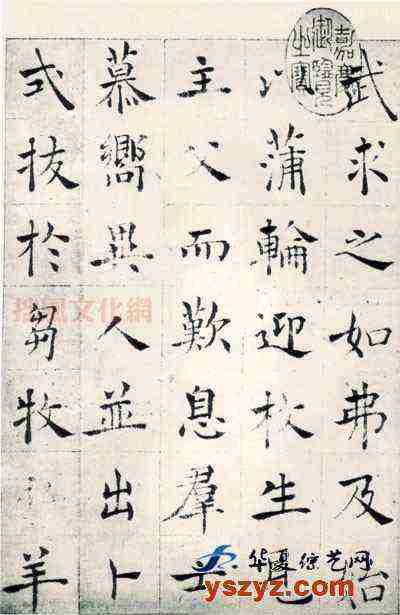 武求之如弗及始
以蒲輪迎枚生見
主父而歎息羣士
慕嚮異人並出卜
式拔於芻牧羊
嘉慶御覽之寶
文化網
华夏综艺网
yszyz.com